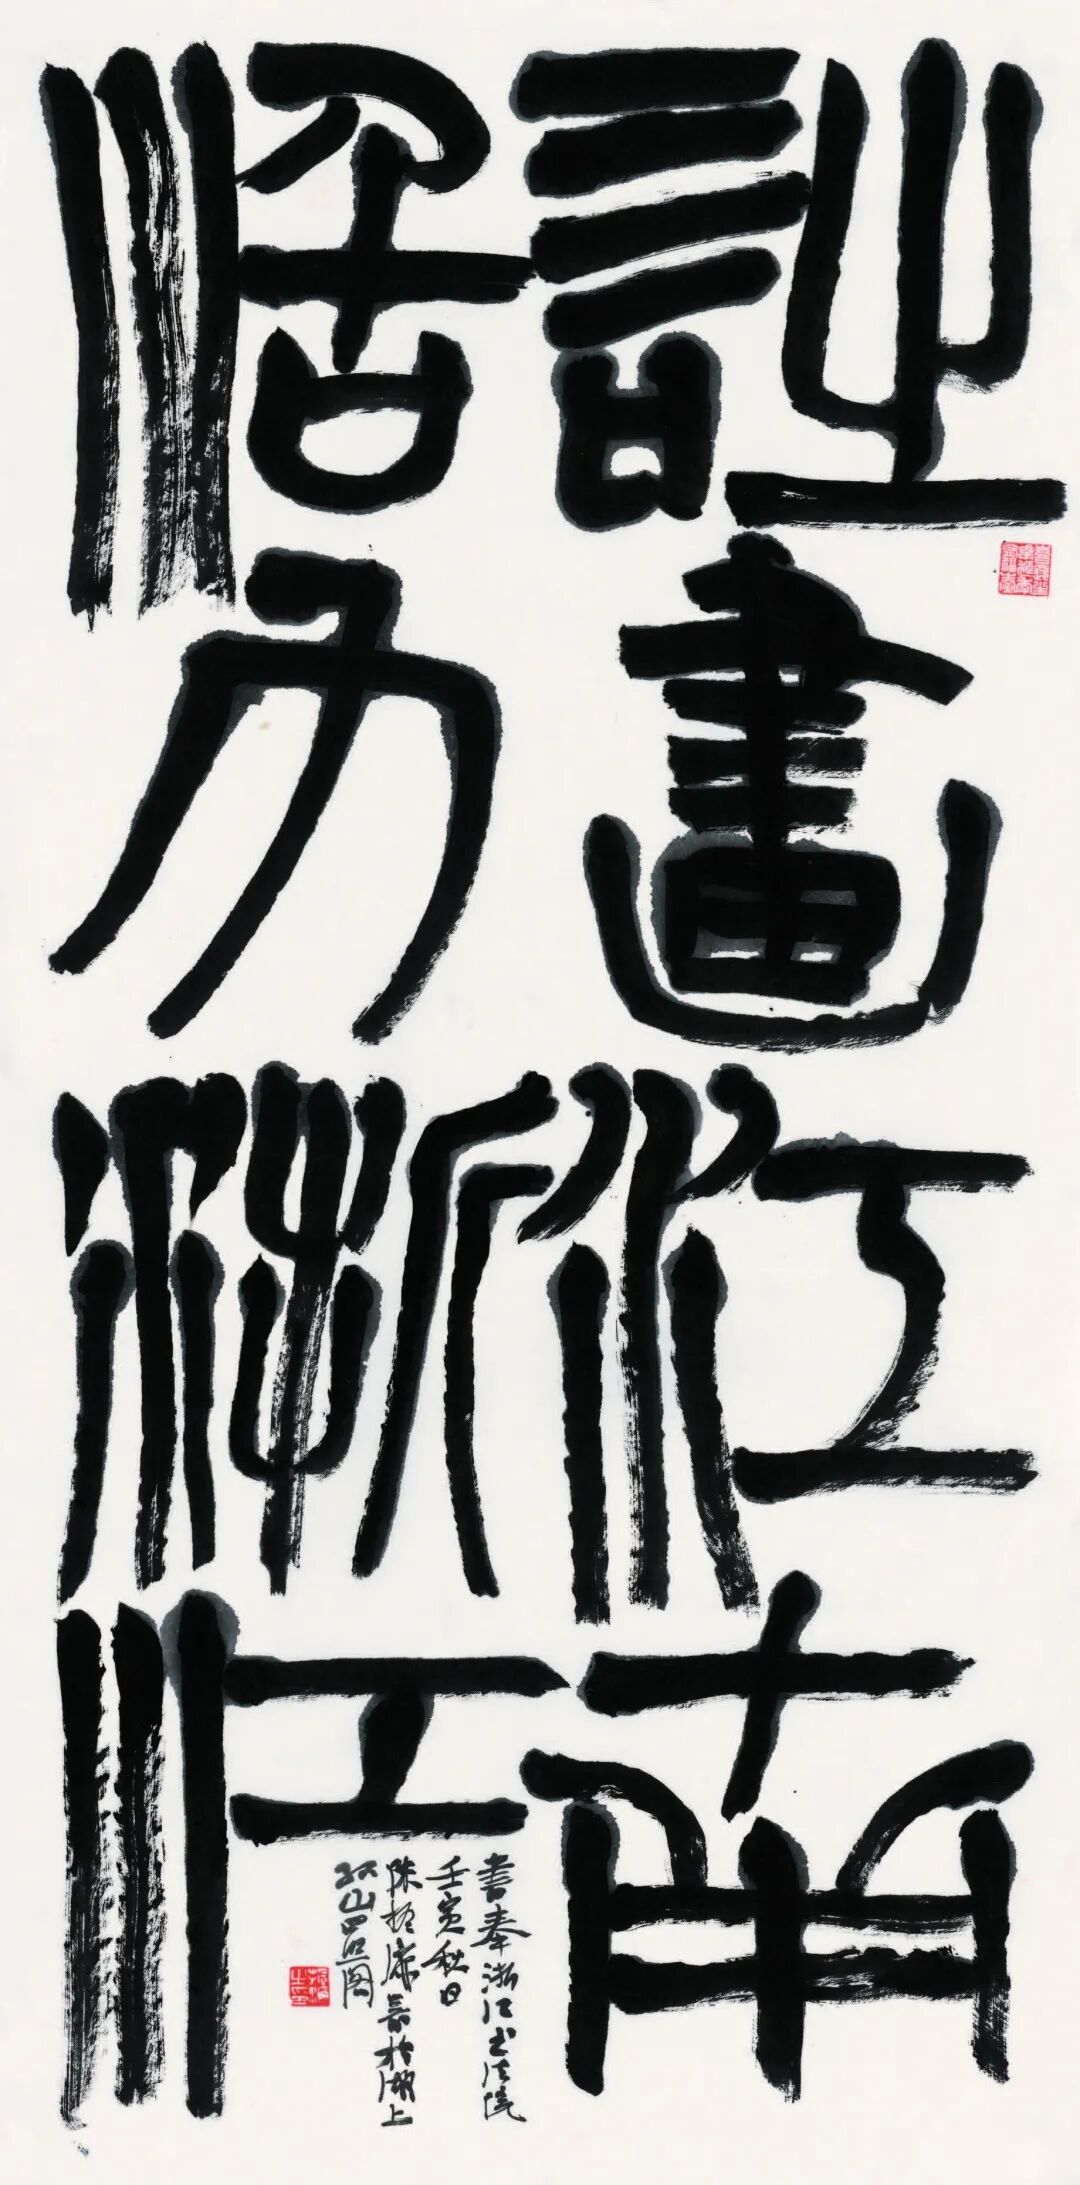 詩畫江南
活力浙江
書奉浙江书法院
壬寅秋日
陈振濂 於湖上
孤山四照阁